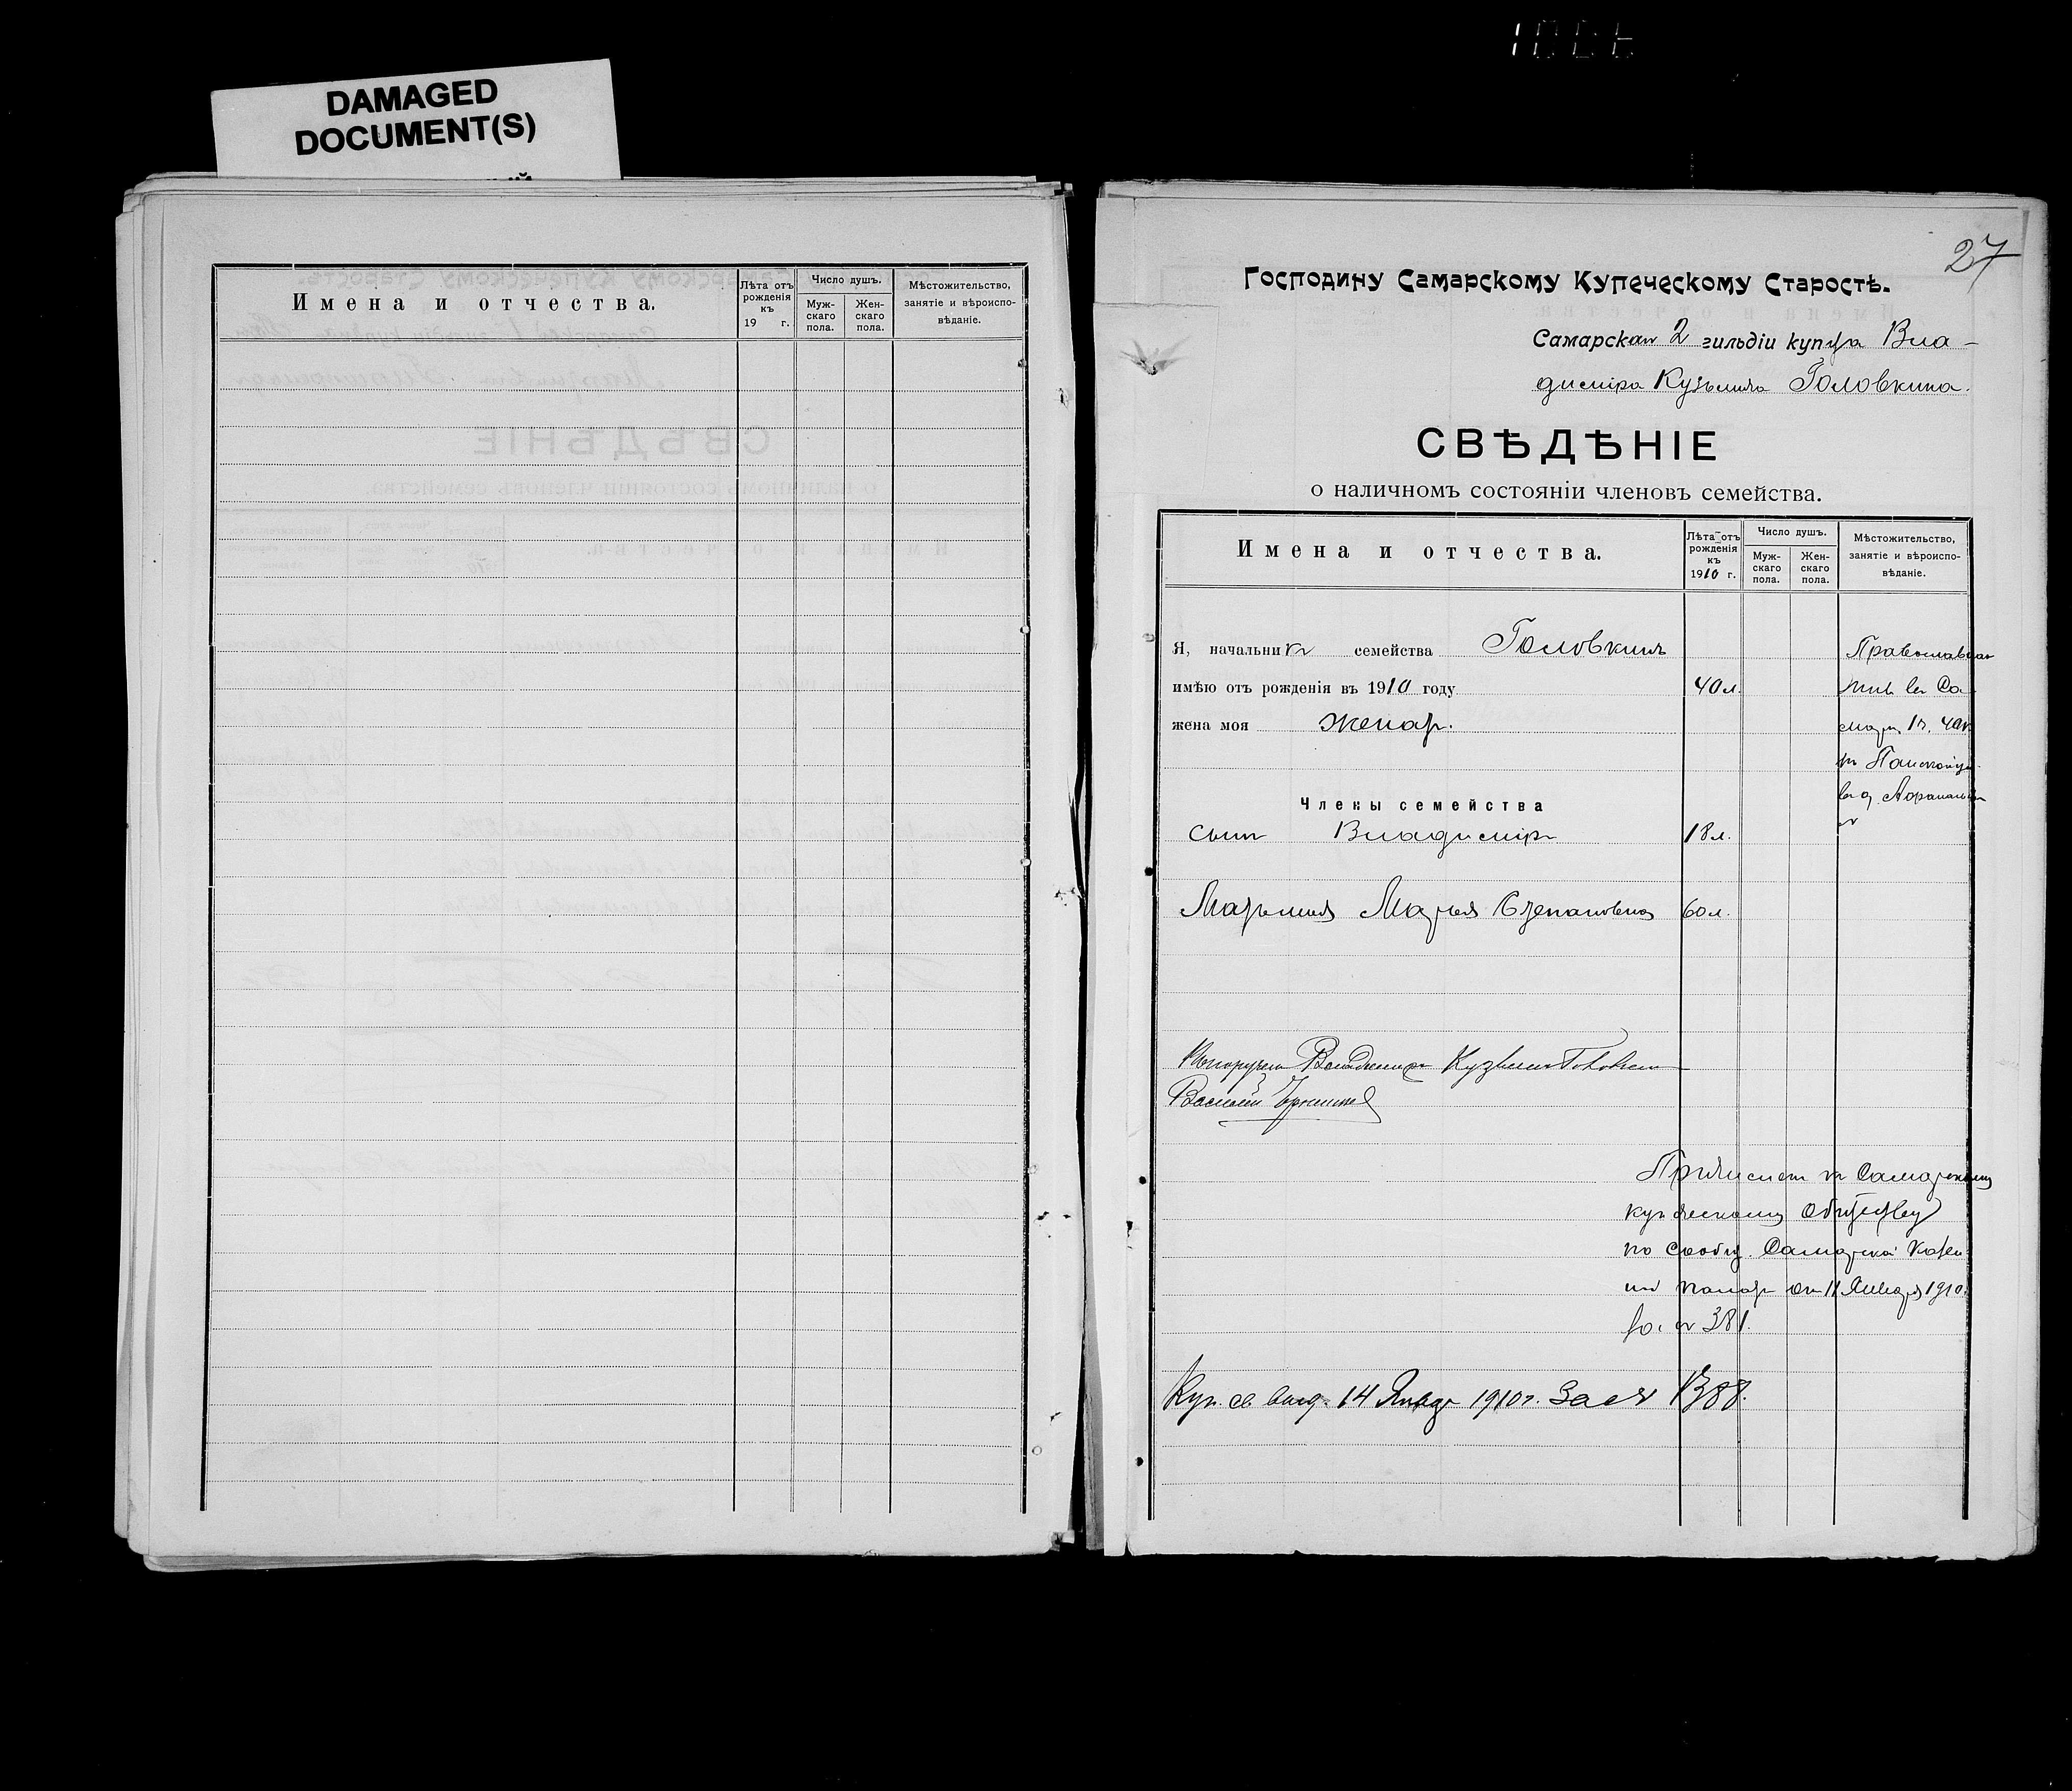 DAMAGED
DOCUMENT(S)
Имена и отчества.
Лѣта отъ рожденія къ 19 г.
Число душъ.
Муж-скаго пола.
Жен-скаго пола.
Мѣстожительство, занятіе и вѣроиспо-вѣданіе.
27
Господину Самарскому Купеческому Старостѣ.
Самарскаго 2 гильдіи купца Вла-
диміра Кузьмича Головкина.
СВѢДѢНІЕ
о наличномъ состояніи членовъ семейства.
Имена и отчества.
Лѣта отъ рожденія къ 1910 г.
Число душъ.
Муж-скаго пола.
Жен-скаго пола.
Мѣстожительство, занятіе и вѣроиспо-вѣданіе.
Я, начальникъ семейства Головкинъ Православнаго
имѣю отъ рожденія въ 1910 году 40 л. жив. въ Са-
жена моя женат. мар. 1й част
по Панской ул.
въ д.
Члены семейства
сынъ Владиміръ 18 л.
Мать Марья Степановна 60 л.
Владимира Кузьмича Головкина
Василий
Причисленъ къ Самарскому
купеческому обществу
по сообщ. Самарской Казен-
ной палаты отъ 11 Января 1910 г.
за № 381.
Куп. св. выд. 14 Января 1910 г. за № 1388.